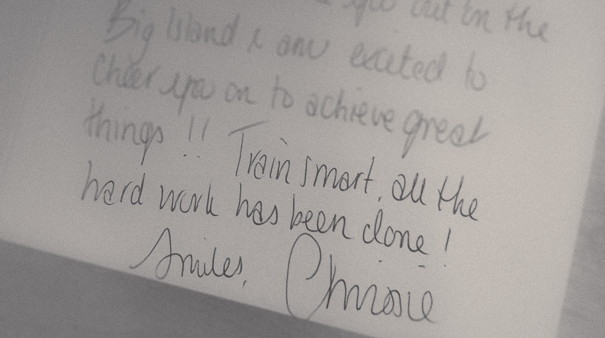 you out on the
Big Island & am excited to
Cheer you on to achieve great
things!! Train smart, all the
hard work has been done!
Smiles, Chrissie